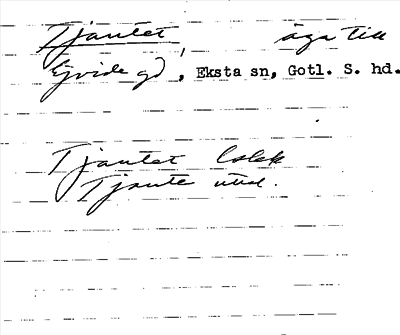 Tjäutet, äga till
Ejvide gd, Eksta sn, Gotl. S. hd.
Tjautet lolek
Tjaute uttal.